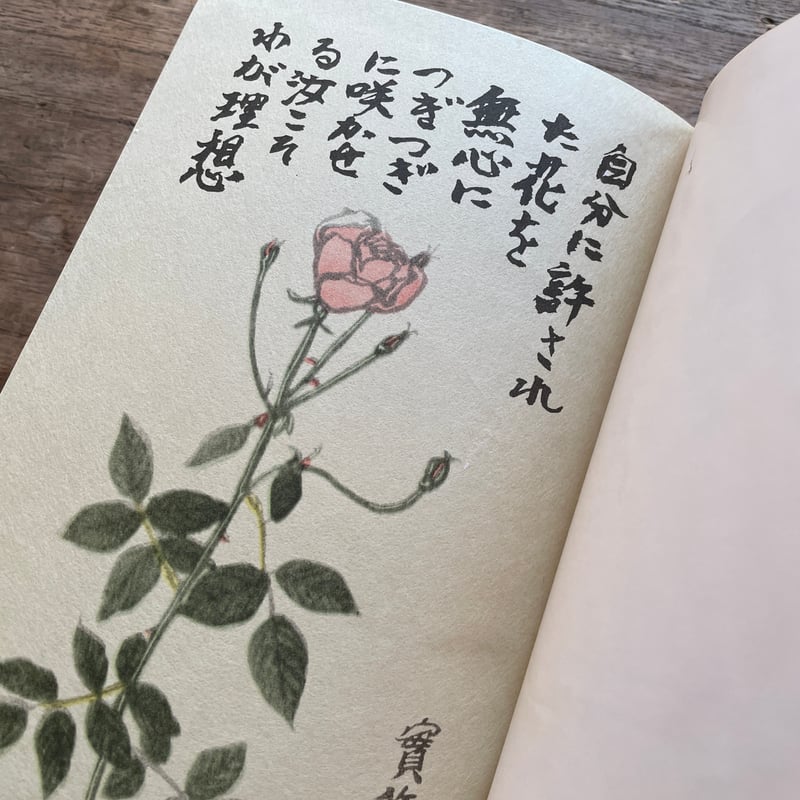 自分に許され
た花を
無心に
つぎつぎ
に咲かせ
る汝こそ
わが理想
實